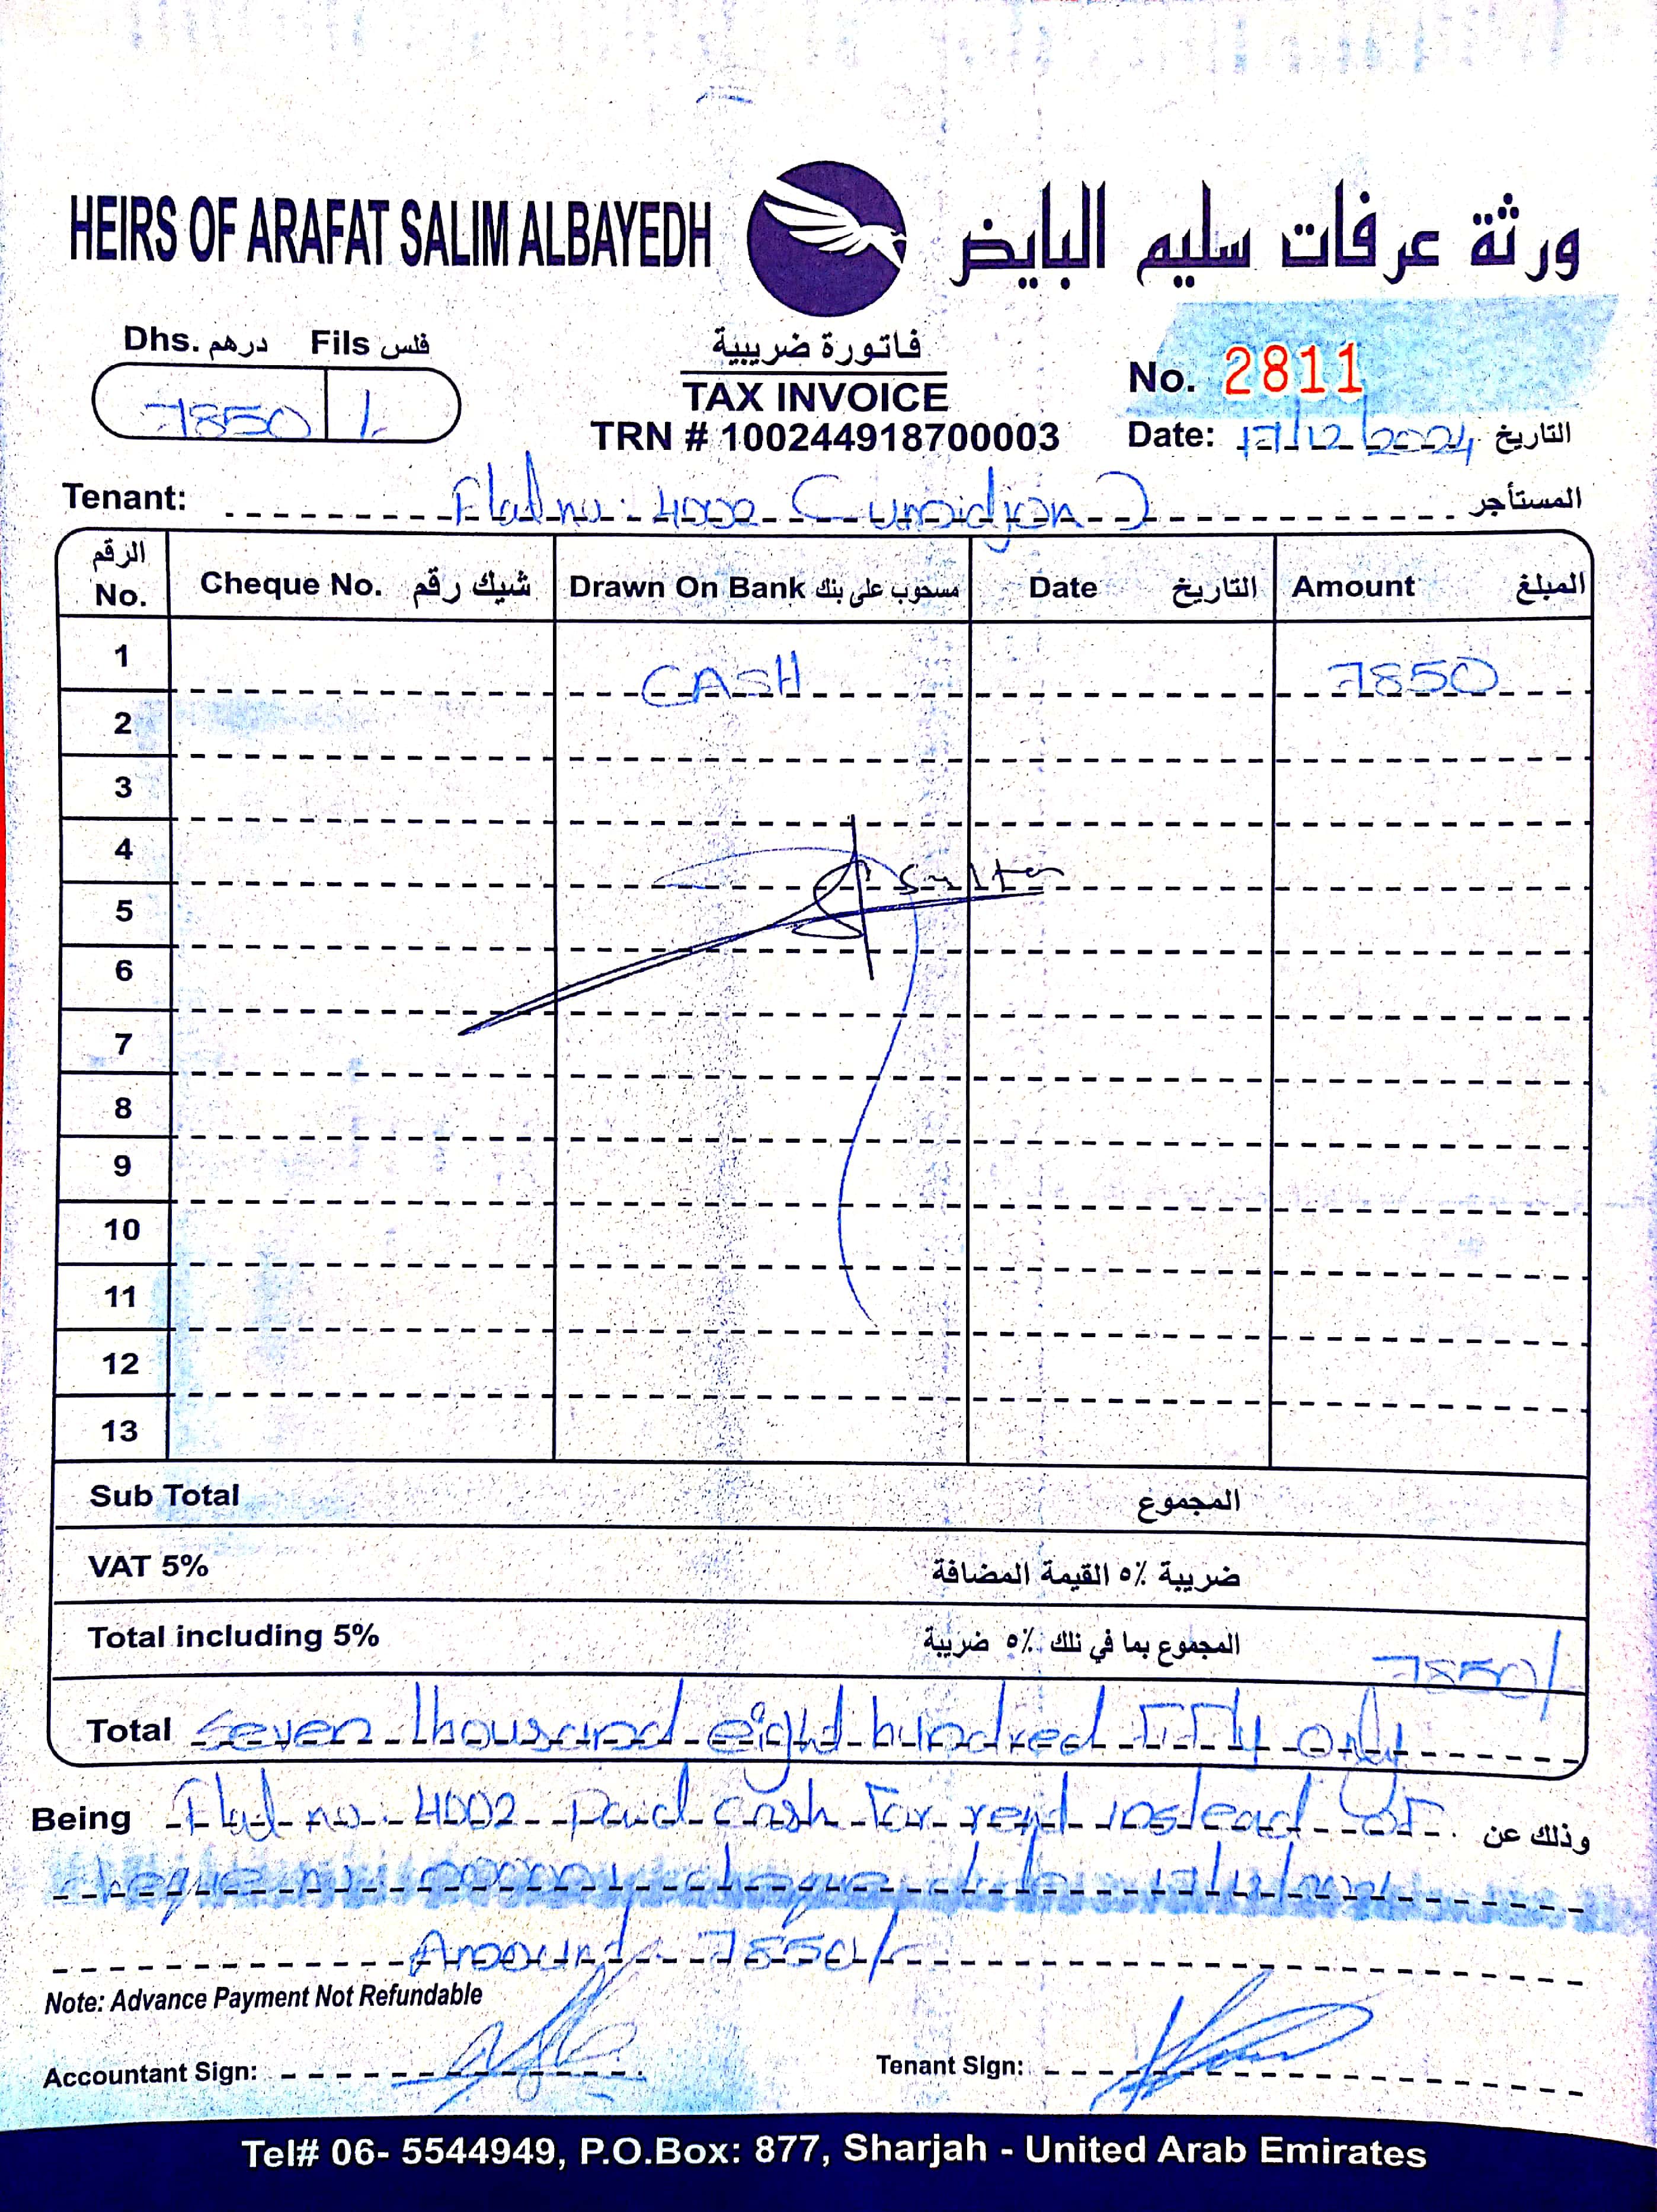 HEIRS OF ARAFAT SALIM ALBAYEDH ورثة عرفات سليم البايض
Dhs. درهم Fils فلس
7850 /-
فاتورة ضريبية
TAX INVOICE
TRN # 100244918700003
No. 2811
Date: 17/12/2024 التاريخ
Tenant: Flat no: 4002 المستأجر
الرقم No. Cheque No. شيك رقم Drawn On Bank مسحوب على بنك Date التاريخ Amount المبلغ
1 CASH 7850
2
3
4
5
6
7
8
9
10
11
12
13
Sub Total المجموع
VAT 5% ضريبة ٥٪ القيمة المضافة
Total including 5% المجموع بما في ذلك ٥٪ ضريبة 7850/
Total Seven thousand eight hundred Fifty only
Being Flat no. 4002 paid cash for rent instead of وذلك عن
cheque no 000001 cheque date
Amount 7850/-
Note: Advance Payment Not Refundable
Accountant Sign: Tenant Sign:
Tel# 06- 5544949, P.O.Box: 877, Sharjah - United Arab Emirates